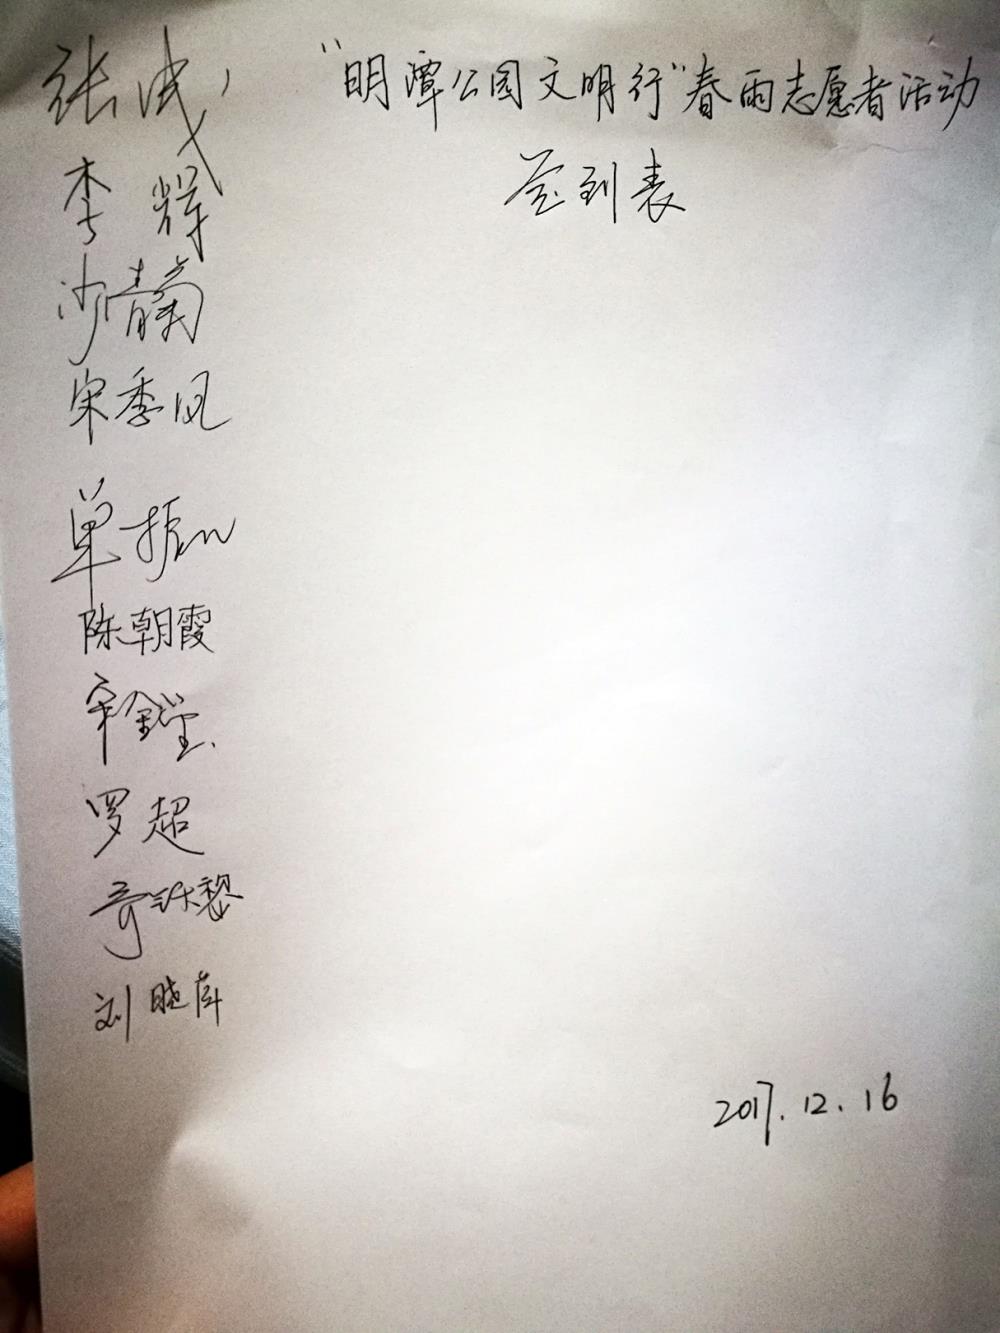 "明潭公园文明行"春雨志愿者活动
签到表
张成
李辉
沙青菊
宋季凤
单振
陈朝霞
宋金莹
罗超
刘晓庆
2017.12.16